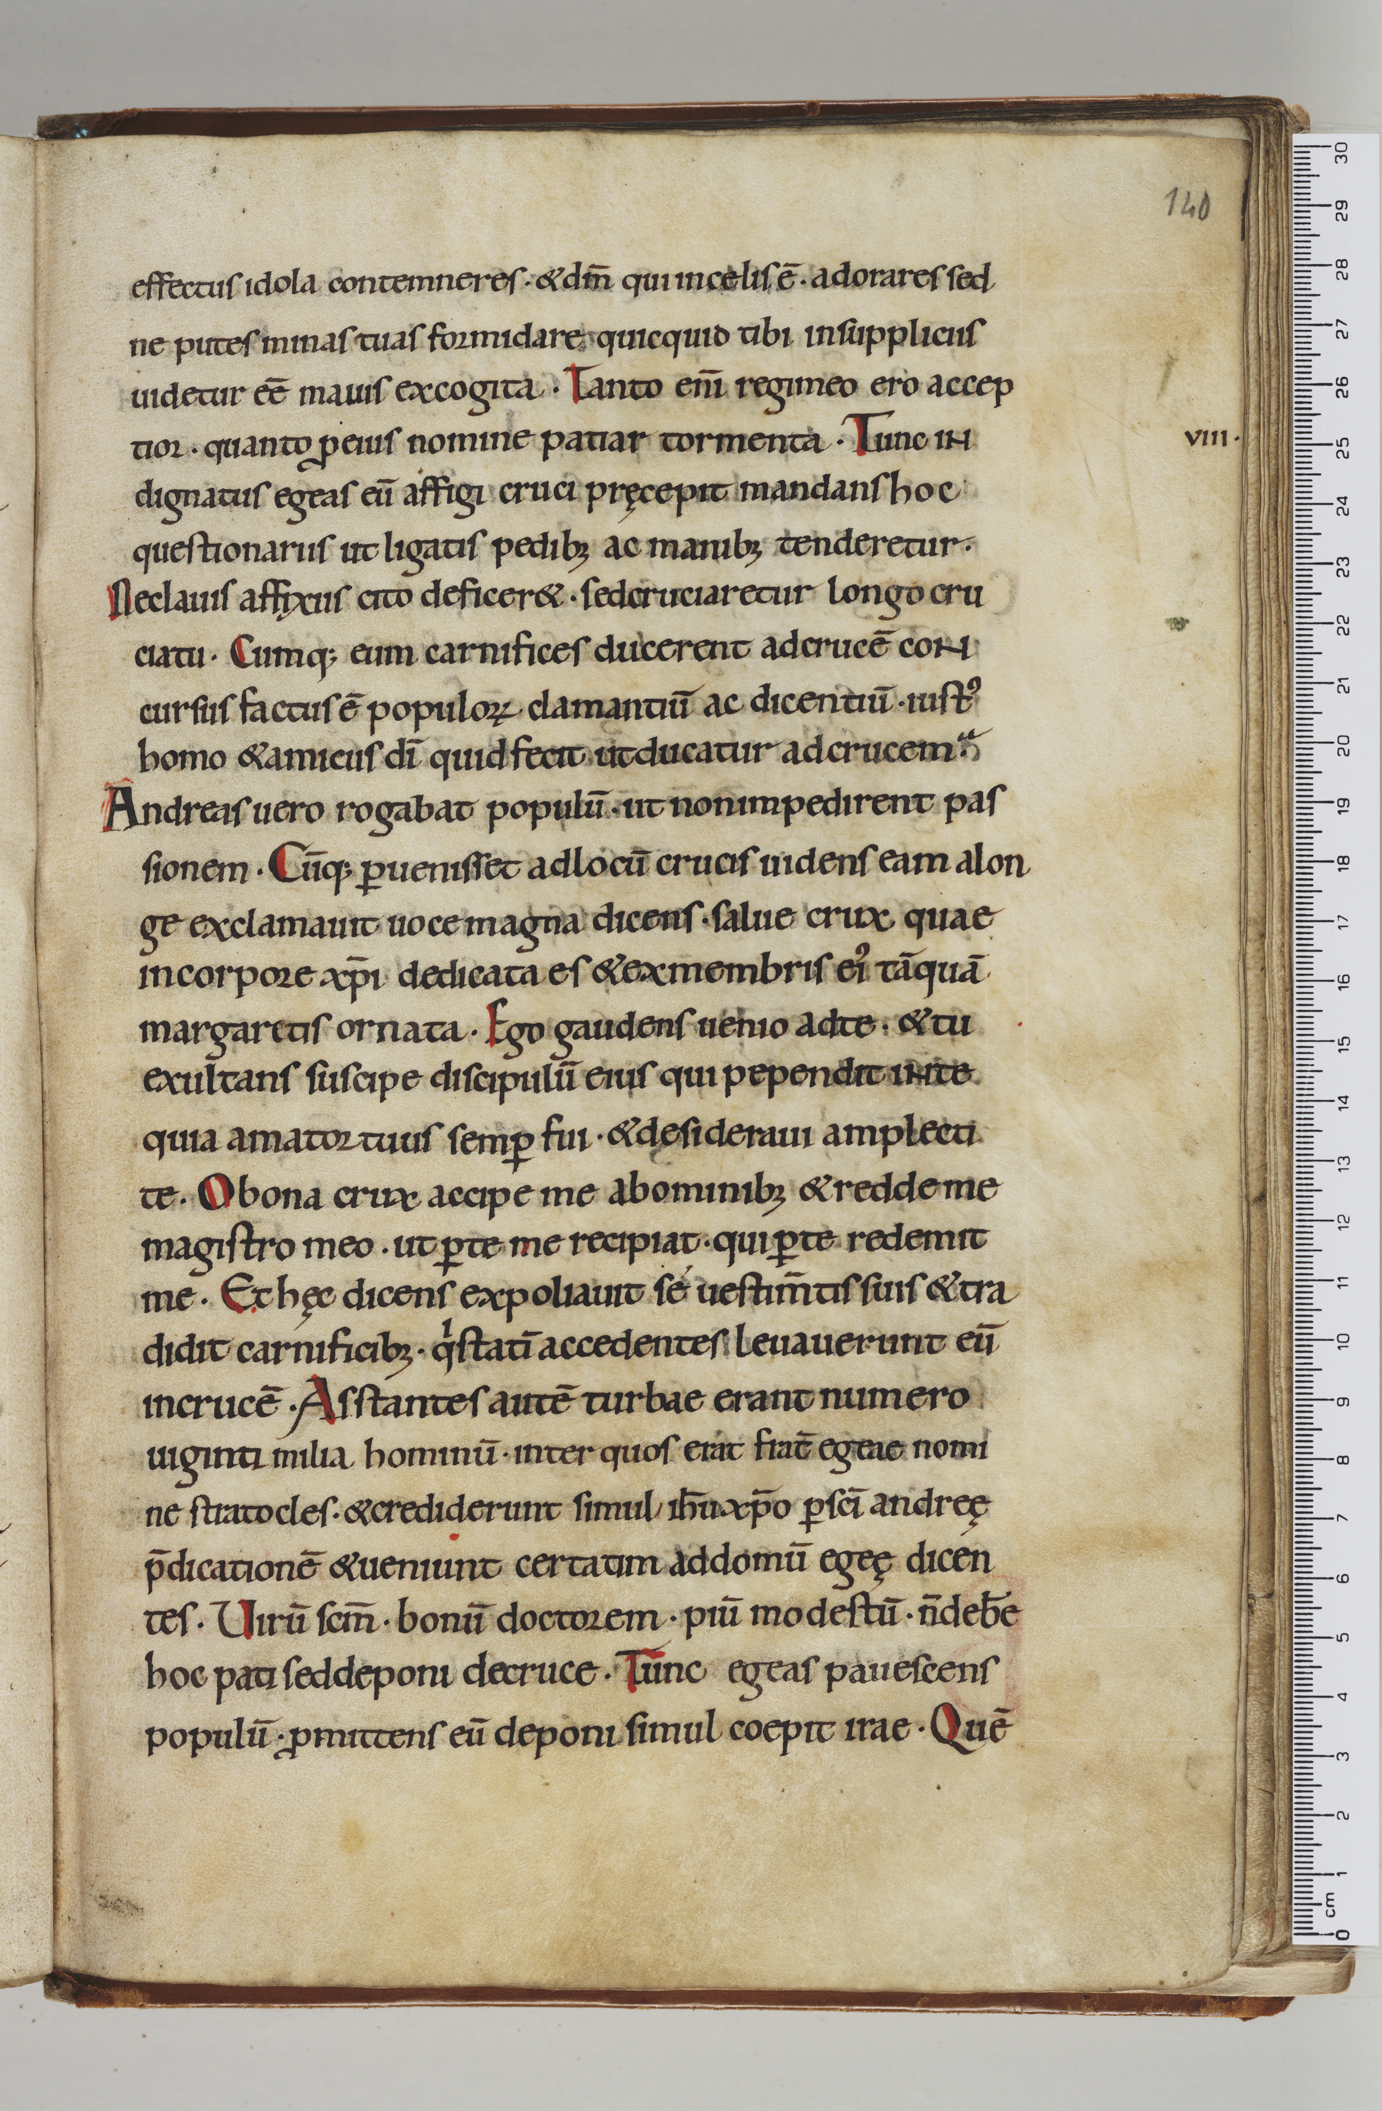 140
effectus idola contemneres · & dm̄ qui in celis ē · adorares sed
ne putes minas tuas formidare quicquid tibi in suppliciis
uidetur eē mauis excogita · Tanto eni̅ regi meo ero accep
tior · quanto ꝓ eius nomine patiar tormenta · Tunc in
viii ·
dignatus egeas eū affigi cruci pręcepit mandans hoc
questionariis ut ligatis pedibꝫ ac manibꝫ tenderetur ·
Ne clauis affixus cito deficer& · sed cruciaretur longo cru
ciatu · Cumq; eum carnifices ducerent ad crucē con
cursus factus ē populoꝝ clamantiū ac dicentiū · iustꝰ
homo & amicus dī quid fecit ut ducatur ad crucem
Andreas uero rogabat populū · ut non impedirent pas
sionem · Cūq; ꝑuenisset ad locū crucis uidens eam a lon
ge exclamauit uoce magna dicens · salue crux quae
in corpore xp̄i dedicata es & ex membris eiꝰ tāquā
margaretis ornata · Ego gaudens uenio ad te · & tu
exultans suscipe discipulū eius qui pependit in te
quia amator tuus semꝑ fui · & desideraui amplecti
te · O bona crux accipe me ab ominibꝫ & redde me
magistro meo · ut ꝑ te me recipiat · qui ꝑ te redemit
me · Et hęc dicens expoliauit sé uestim̄tis suis & tra
didit carnificibꝫ · qͥ statī accedentes leuauerunt eū
in crucē · Asstantes autē turbae erant numero
uiginti milia hominū · inter quos erat frat̄ egeae nomi
ne stratocles · & crediderunt simul ih̄u xp̄o ꝑ sc̄i andreę
p̄dicationē & ueniunt certatim ad domū egeę dicen
tes · Uirū sc̄m · bonū doctorem · piū modestū · n̄ deb̄e
hoc pati sed deponi de cruce · Tunc egeas pauescens
populū · ꝓmittens eū deponi simul coepit irae · Quē